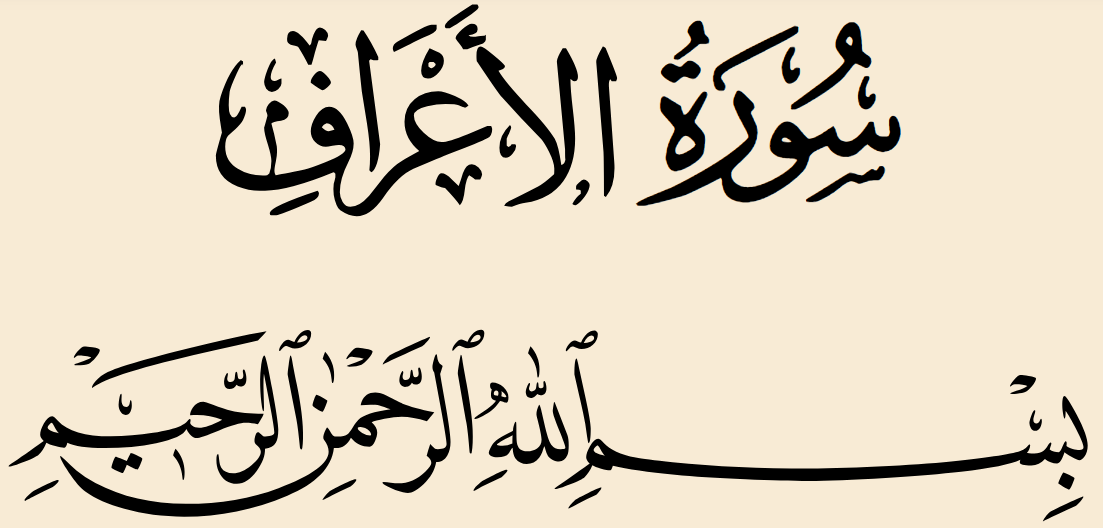 سُورَةُ الأَعْرَافِ
بِسْمِ ٱللَّهِ ٱلرَّحْمَٰنِ ٱلرَّحِيمْ